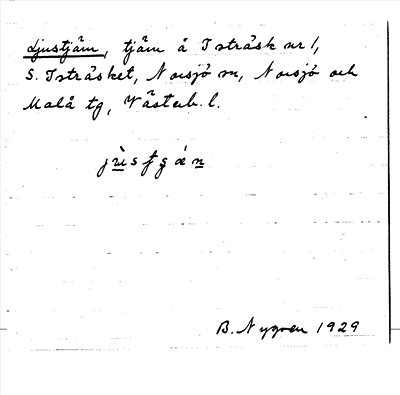 Ljustjärn, tjärn å Isträsk nr 1,
S. Isträsket, Norsjö sn, Norsjö och
Malå tg, Västerb. l.
B. Nygren 1929